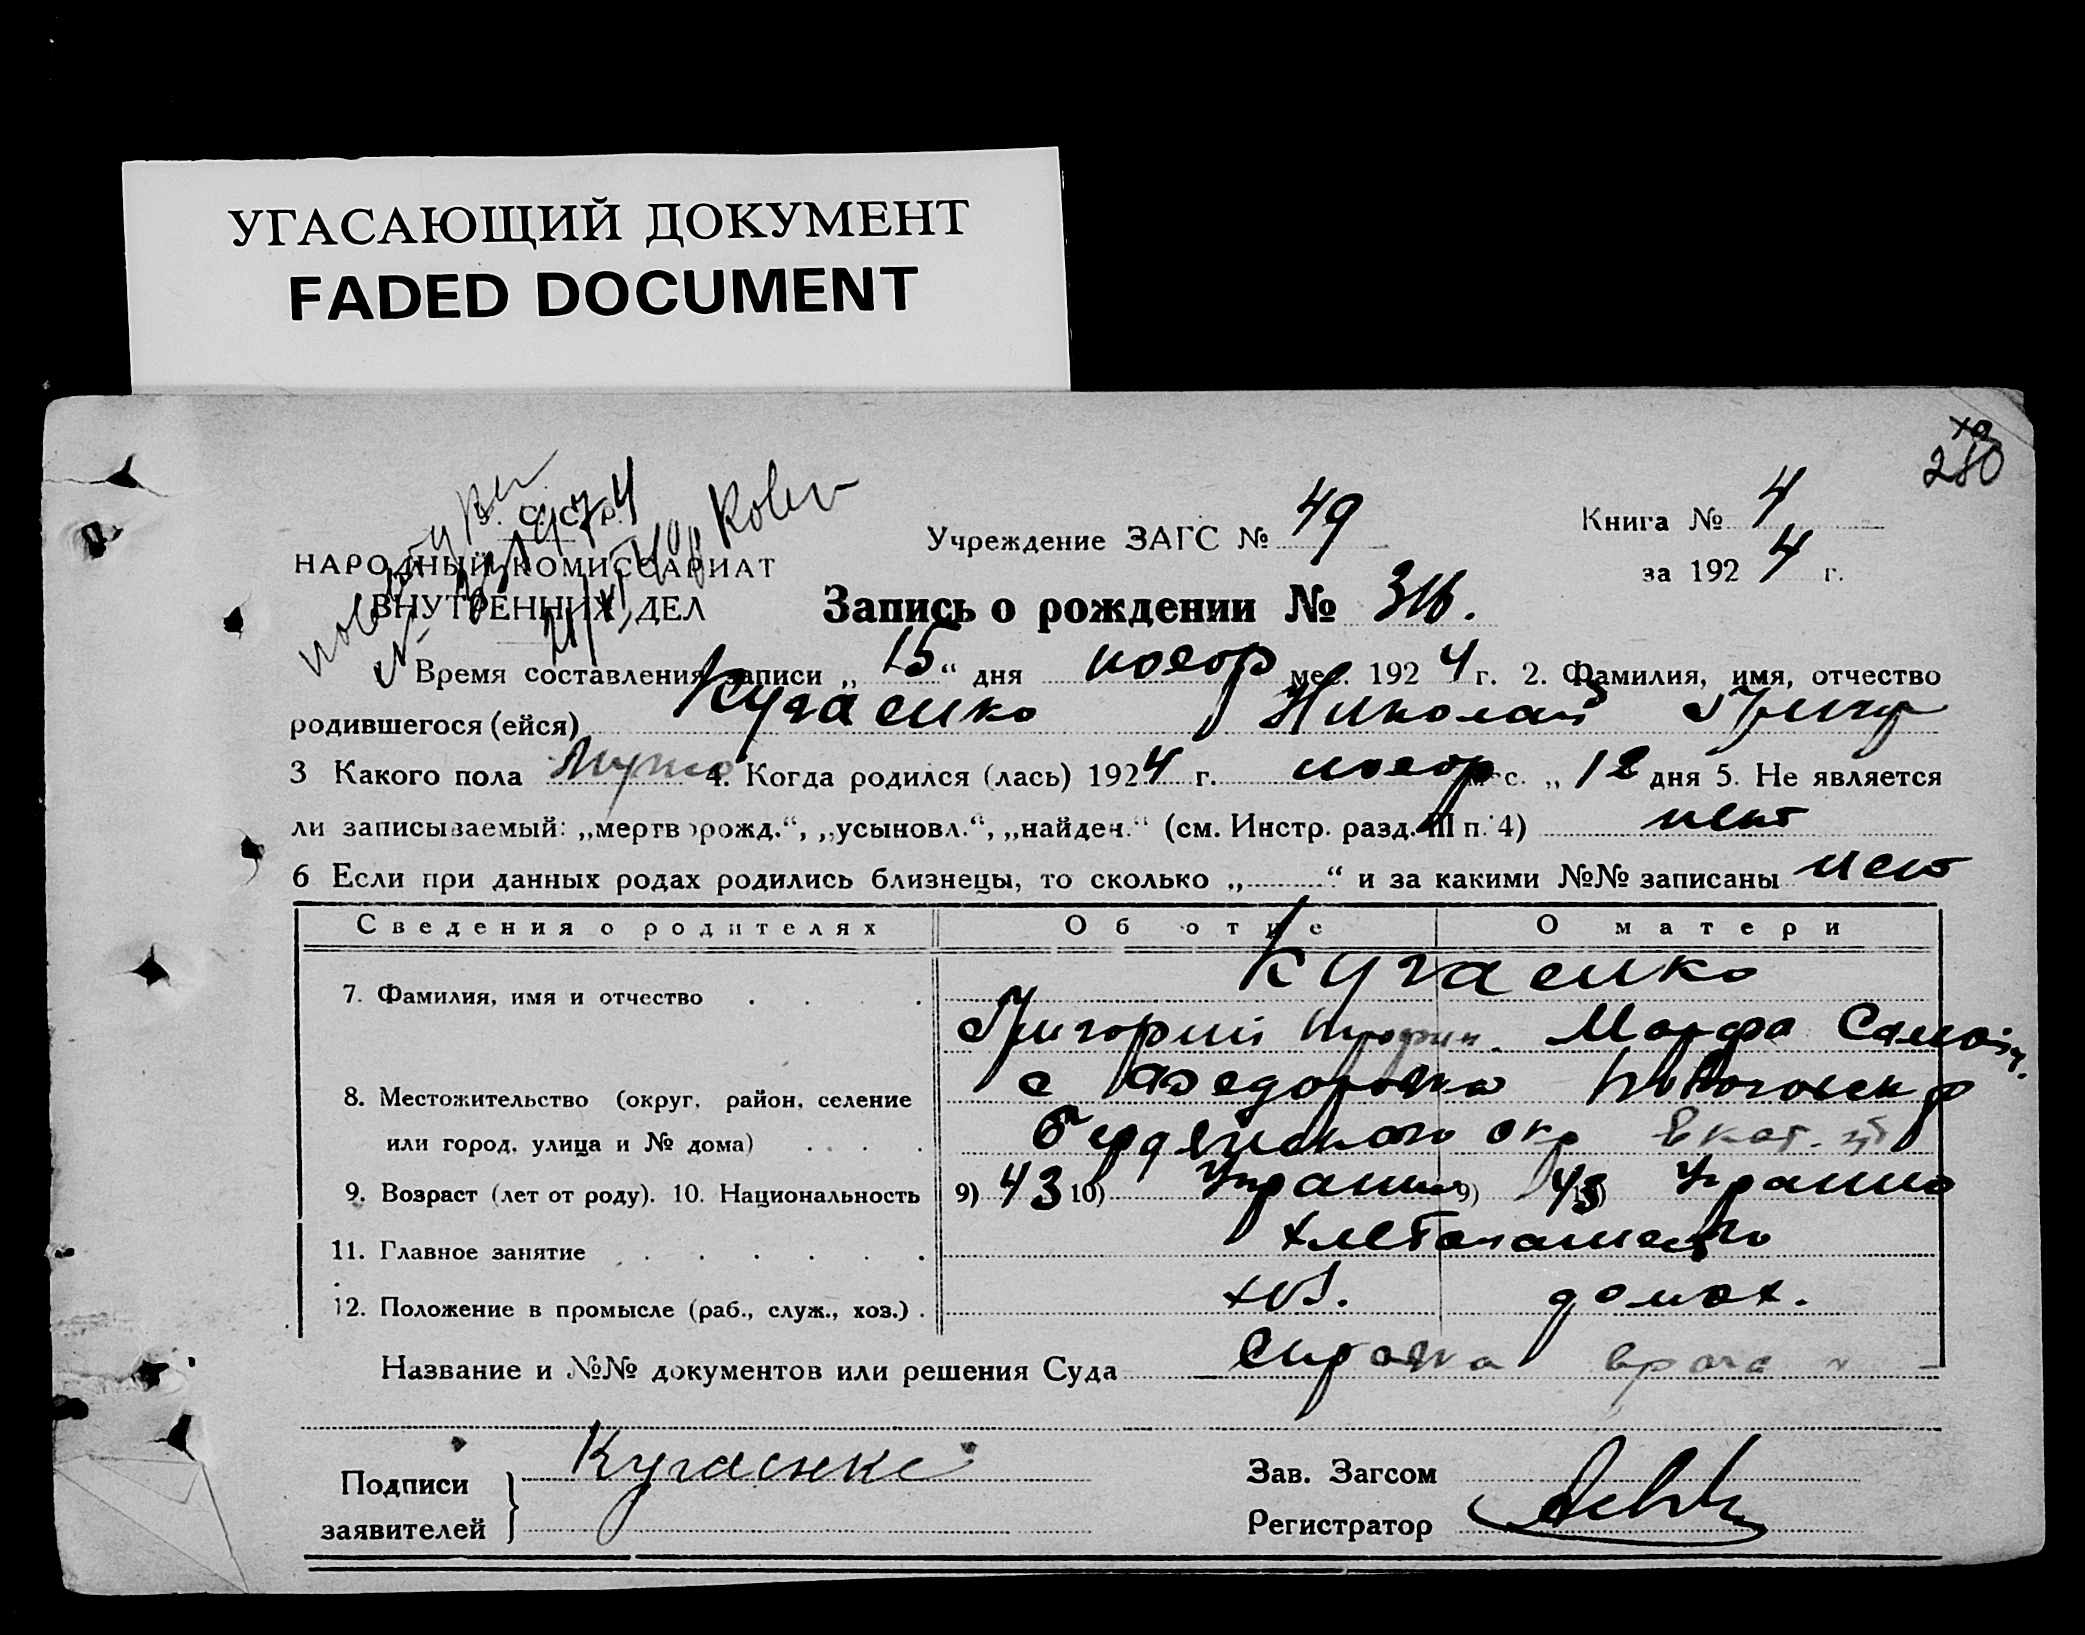 УГАСАЮЩИЙ ДОКУМЕНТ
FADED DOCUMENT
280
С.С.Р.
НАРОДНЫЙ КОМИССАРИАТ
ВНУТРЕННИХ ДЕЛ
Учреждение ЗАГС № 49
Книга № 4
за 1924 г.
Запись о рождении № 316.
Время составления записи „15“ дня ноябр мес. 1924 г. 2. Фамилия, имя, отчество
родившегося (ейся) Кугаенко Николай Григ
3 Какого пола Мужс 4. Когда родился (лась) 1924 г. ноябр м-с. „12 дня 5. Не является
ли записываемый: „мертворожд.“, „усыновл.“, „найден.“ (см. Инстр. разд. III п. 4) нет
6 Если при данных родах родились близнецы, то сколько „..........“ и за какими №№ записаны нет
Сведения о родителях Об отце О матери
7. Фамилия, имя и отчество Кугаенко
Григорий Трофим. Марфа Самой
8. Местожительство (округ, район, селение с Федоровка
или город, улица и № дома) Бердянского окр Екат. гб
9. Возраст (лет от роду). 10. Национальность 9) 43 10) Украин 9) 43 Украин
11. Главное занятие хлебопашество
12. Положение в промысле (раб., служ., хоз.) хоз. домох.
Название и №№ документов или решения Суда Справка врача
Подписи заявителей Кугаенко
Зав. Загсом
Регистратор